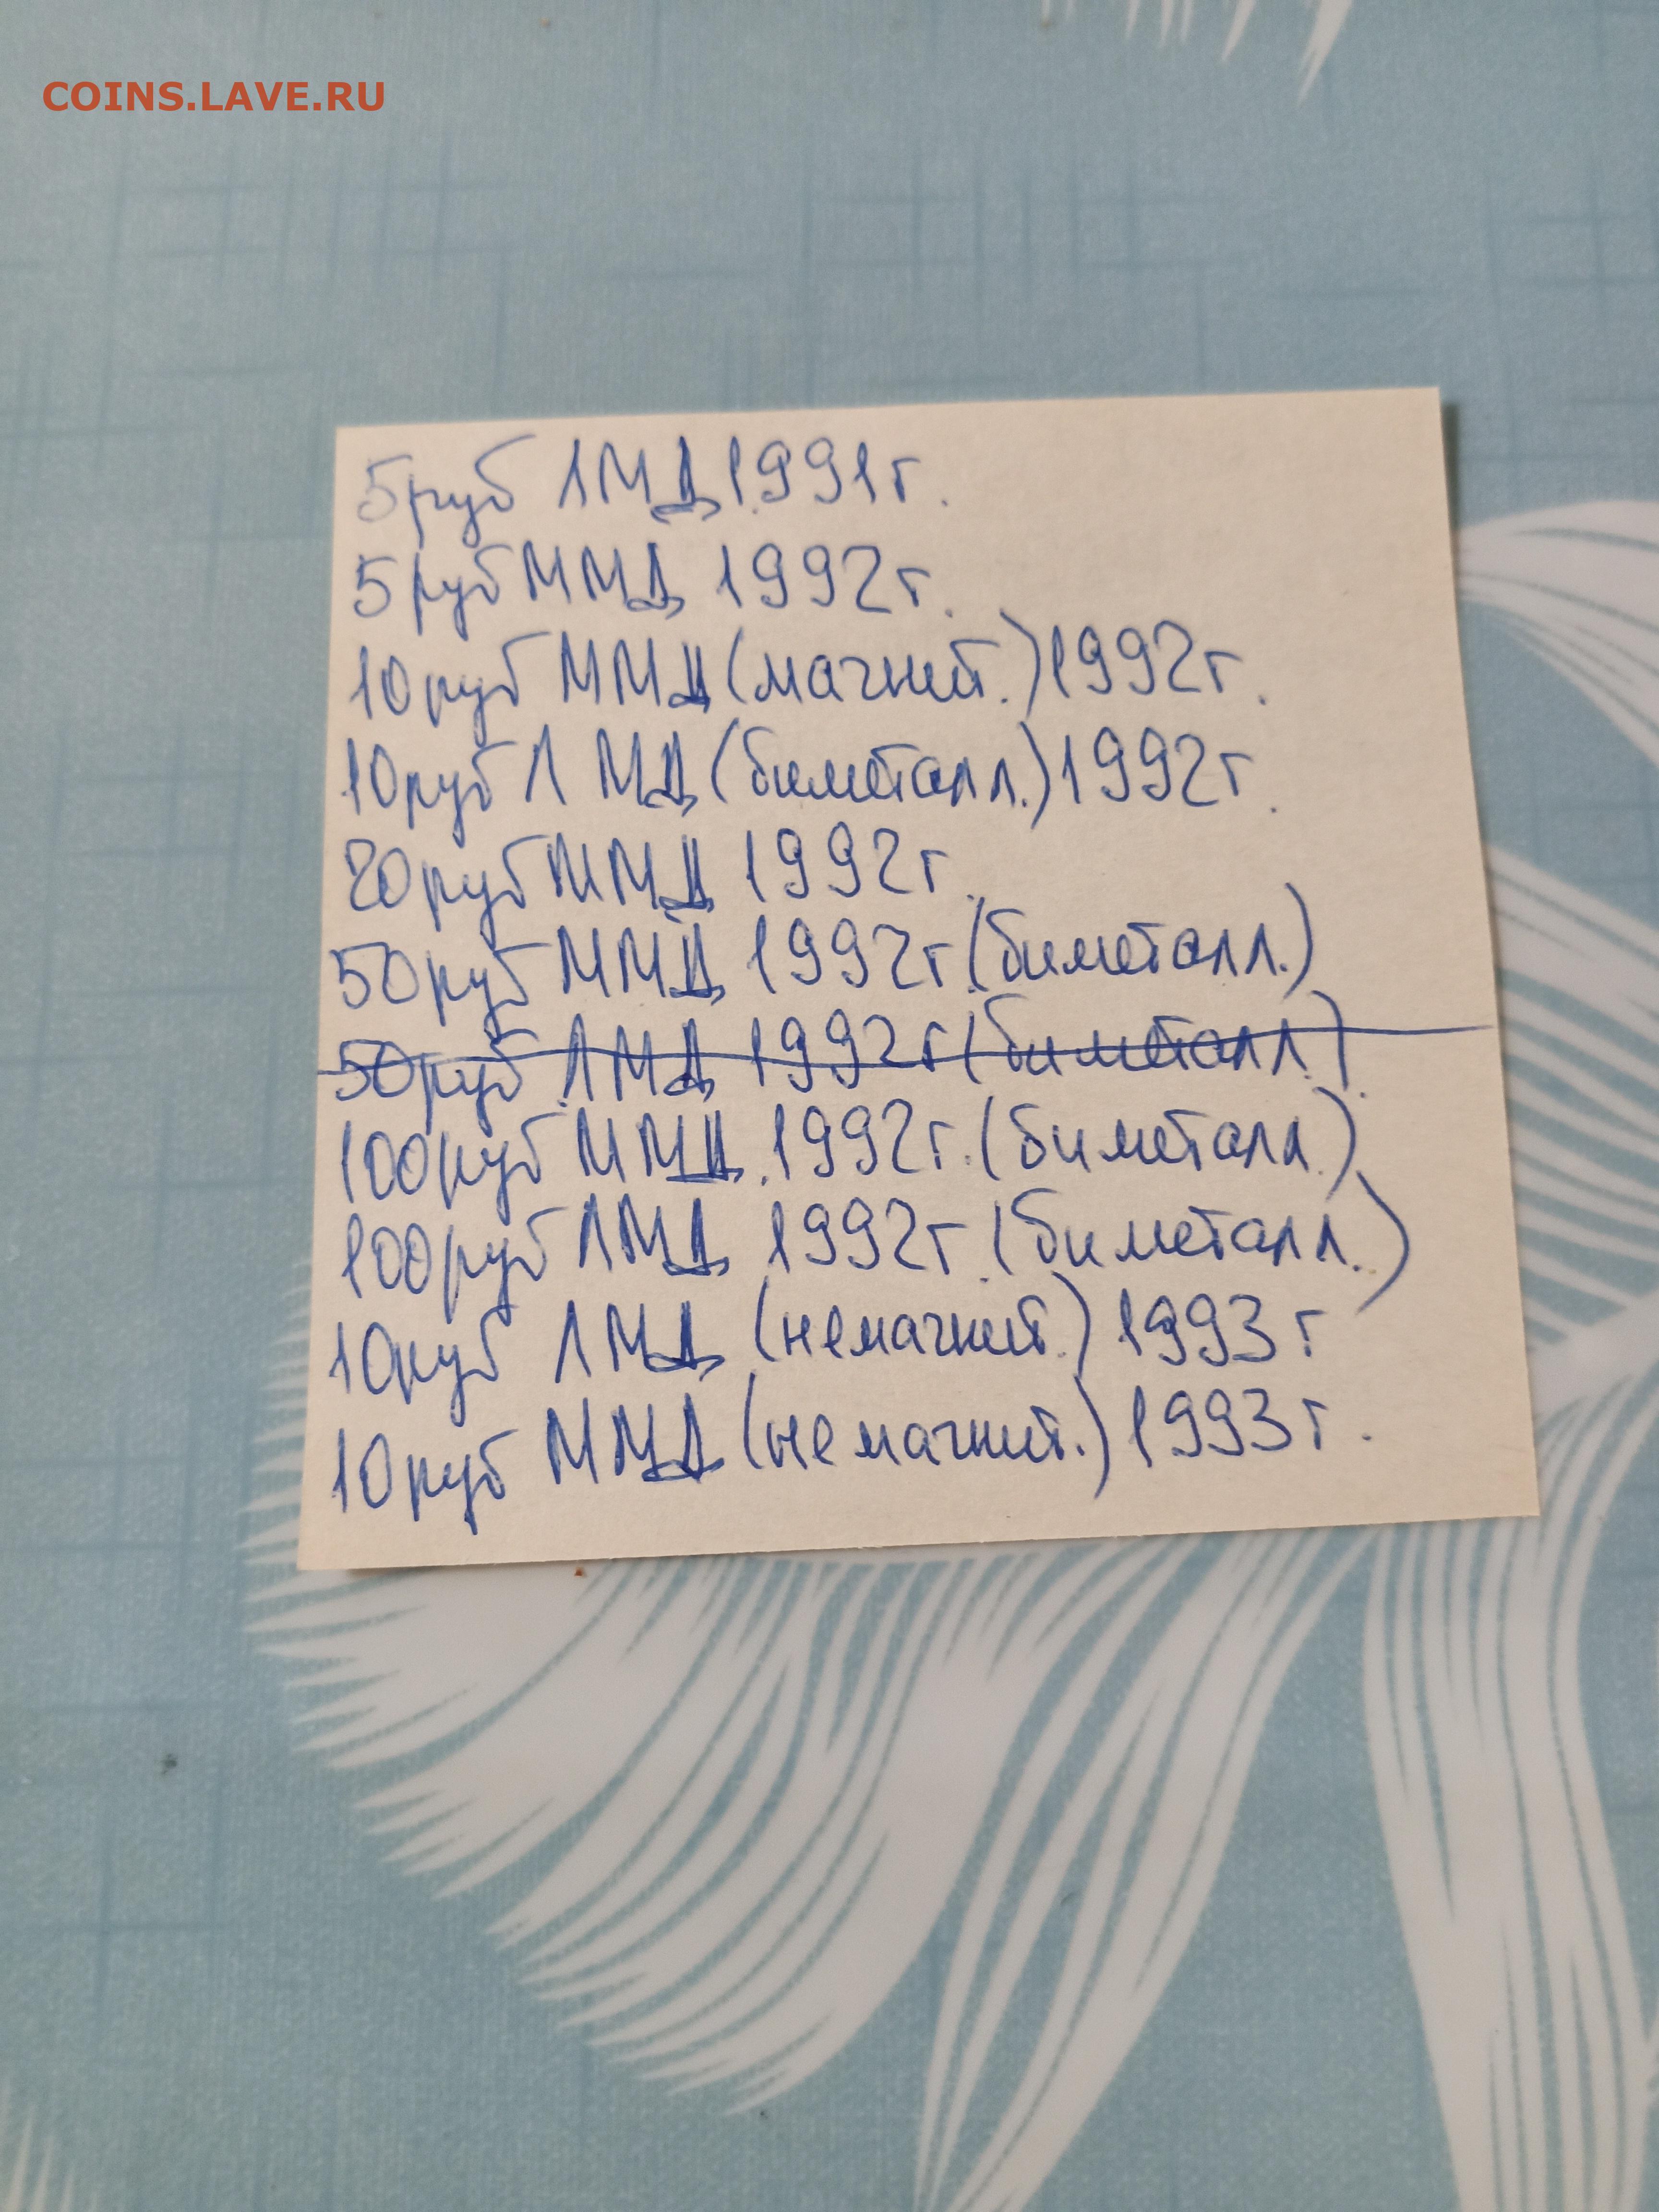 COINS.LAVE.RU
5руб ЛМД 1991г.
5руб ММД 1992г.
10руб ММД (магнит.) 1992г.
10руб ЛМД (биметалл.) 1992г.
20руб ММД 1992г.
50руб ММД 1992г. (биметалл.)
50руб ЛМД 1992г. (биметалл.)
100руб ММД. 1992г. (биметалл.)
100руб ЛМД 1992г. (биметалл.)
10руб ЛМД (немагнит.) 1993г
10руб ММД (немагнит.) 1993г.